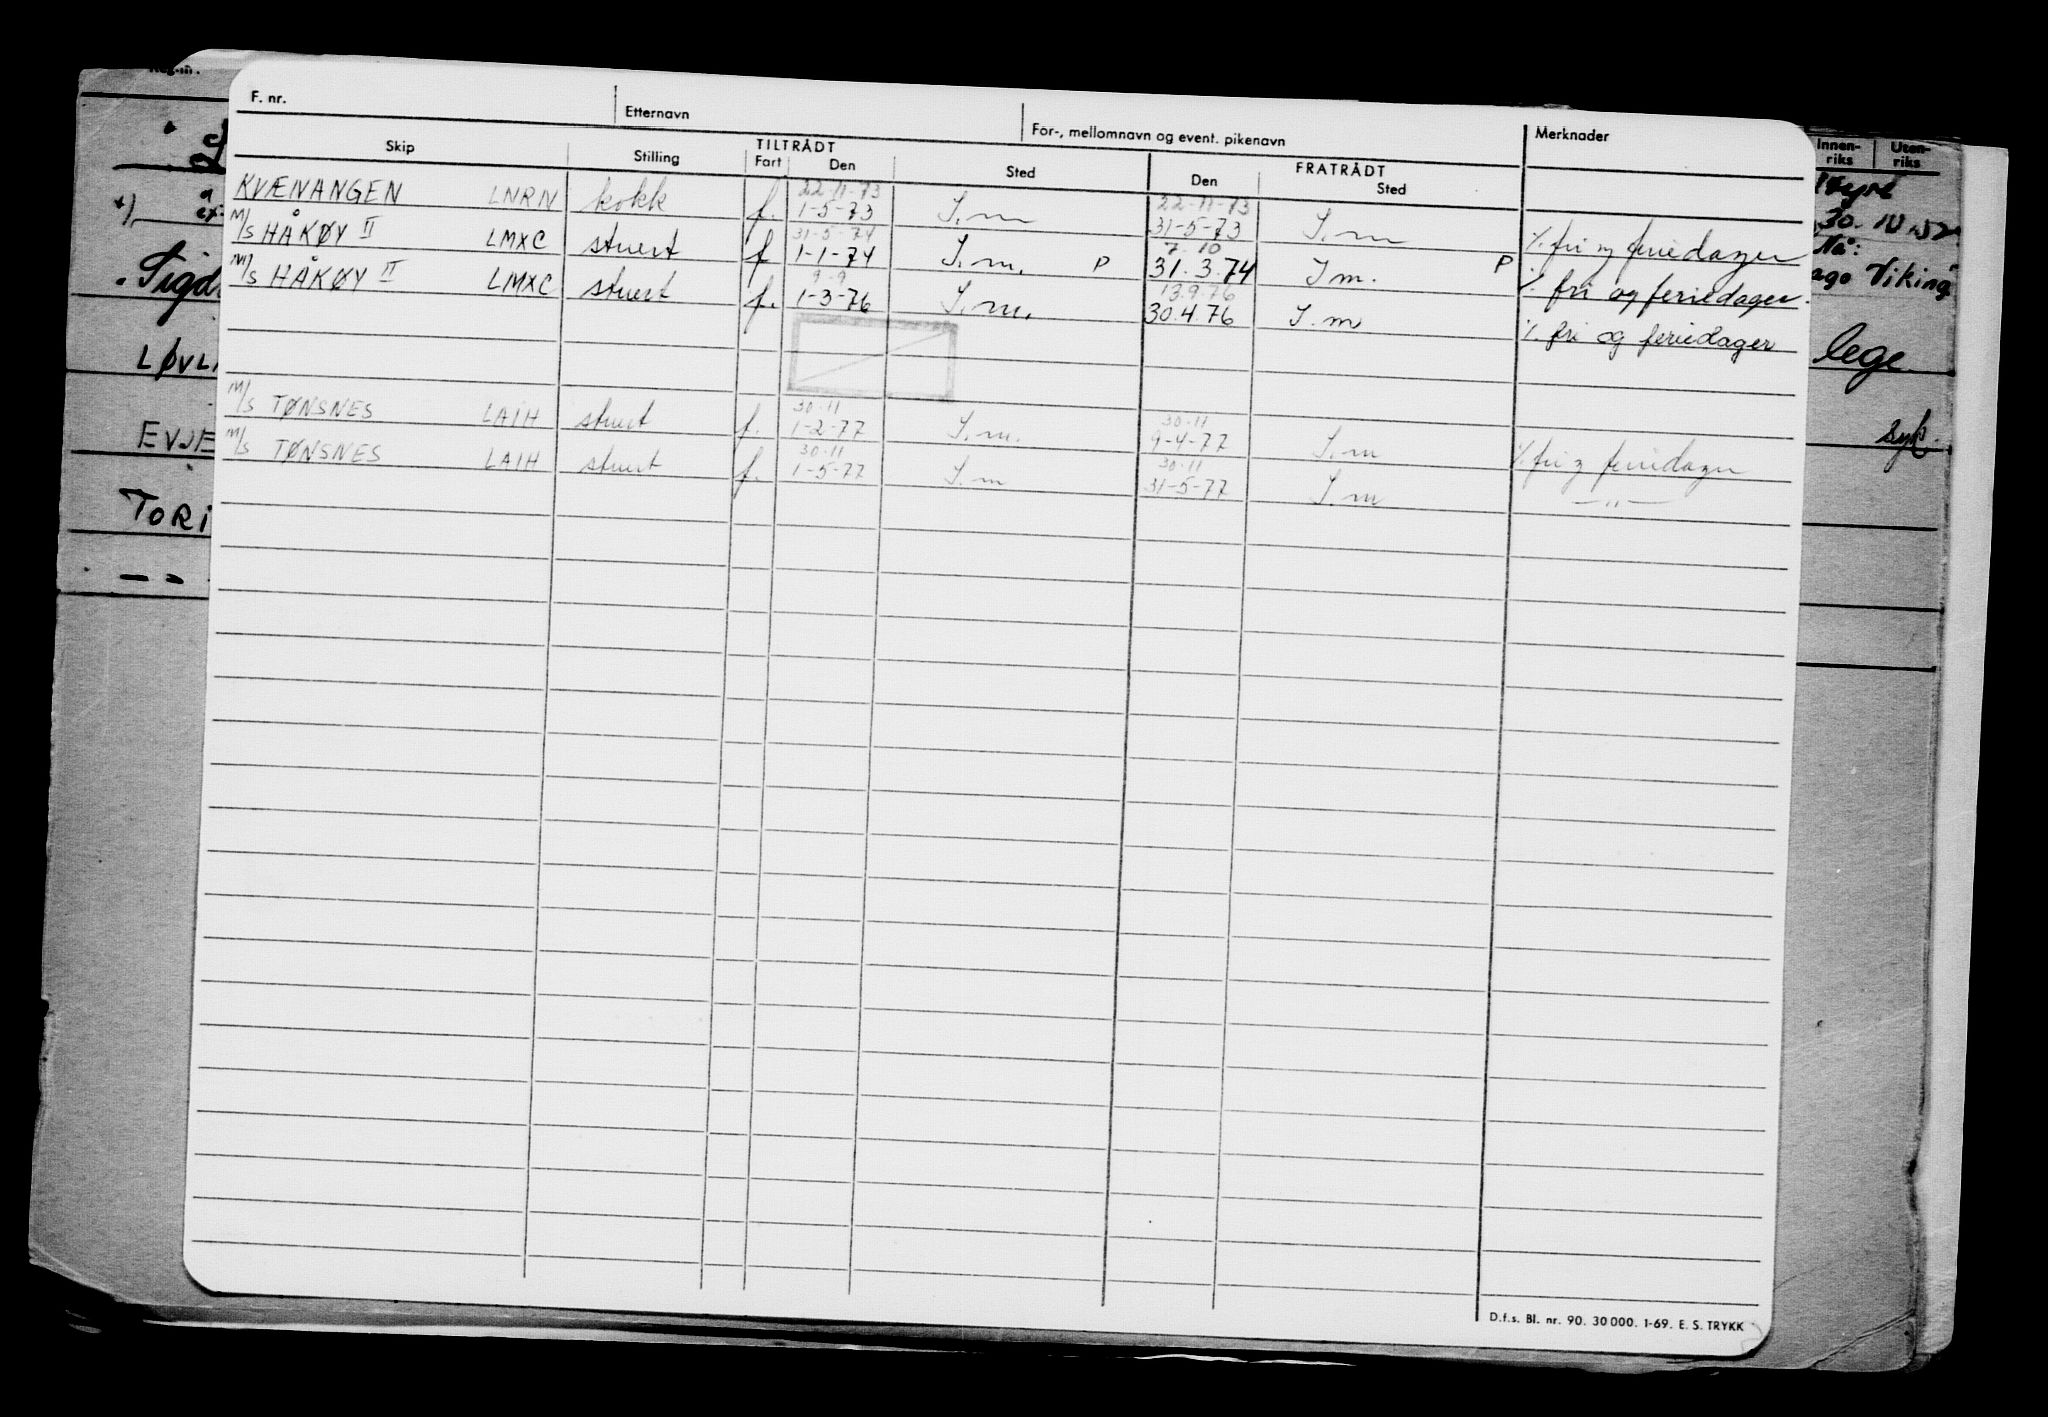 F. nr.
Etternavn
For-, mellomnavn og event. pikenavn
Merknader
Skip
Stilling
TILTRÅDT
Fart
Den
Sted
FRATRÅDT
Den
Sted
KVÆNANGEN LNRN kokk f. 22-11-73 1-5-73 S.m 22-11-73 31-5-73 S.m ⁒ fri og feriedager
M/S HÅKØY II LMXC stuert f 31-5-74 1-1-74 S.m. P 7.10 31.3.74 S m. P ⁒ fri og feriedager.
M/S HÅKØY II LMXC stuert f. 9-9 1-3-76 S.m. 13.9.76 30.4.76 S.m ⁒ fri og feriedager
M/S TØNSNES LAIH stuert f. 30.11 1-2-77 S.m. 30.11 9-4-77 S.m ⁒ fri og feriedager
M/S TØNSNES LAIH stuert f. 30.11 1-5-77 S.m 30.11 31-5-77 S.m —〃—
D.f.s. Bl. nr. 90. 30 000. 1-69. E. S. TRYKK
Innen-
riks
Uten-
riks
30.10.52
Nå:
Viking
lege
syk.
LØVL
EVJE
TORI